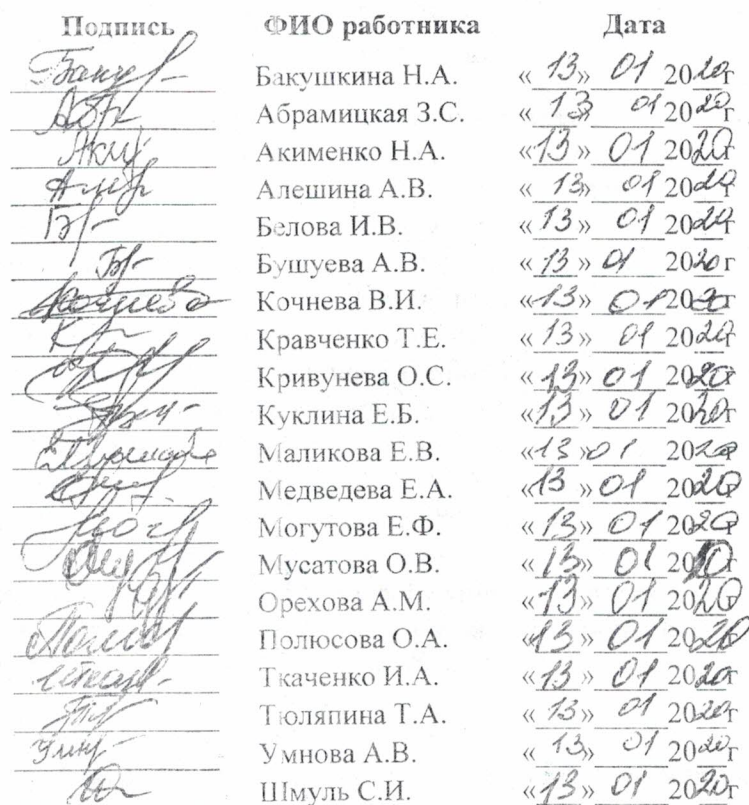 Подпись ФИО работника Дата
Бакушкина Н.А. «13» 01 2020г
Абрамицкая З.С. «13» 01 2020г
Акименко Н.А. «13» 01 2020г
Алешина А.В. «13» 01 2020г
Белова И.В. «13» 01 2020г
Бушуева А.В. «13» 01 2020г
Кочнева В.И. «13» 01 2020г
Кравченко Т.Е. «13» 01 2020г
Кривунева О.С. «13» 01 2020г
Куклина Е.Б. «13» 01 2020г
Маликова Е.В. «13» 01 2020
Медведева Е.А. «13» 01 2020г
Могутова Е.Ф. «13» 01 2020г
Мусатова О.В. «13» 01 2020г
Орехова А.М. «13» 01 2020г
Полюсова О.А. «13» 01 2020
Ткаченко И.А. «13» 01 2020г
Тюляпина Т.А. «13» 01 2020г
Умнова А.В. «13» 01 2020г
Шмуль С.И. «13» 01 2020г